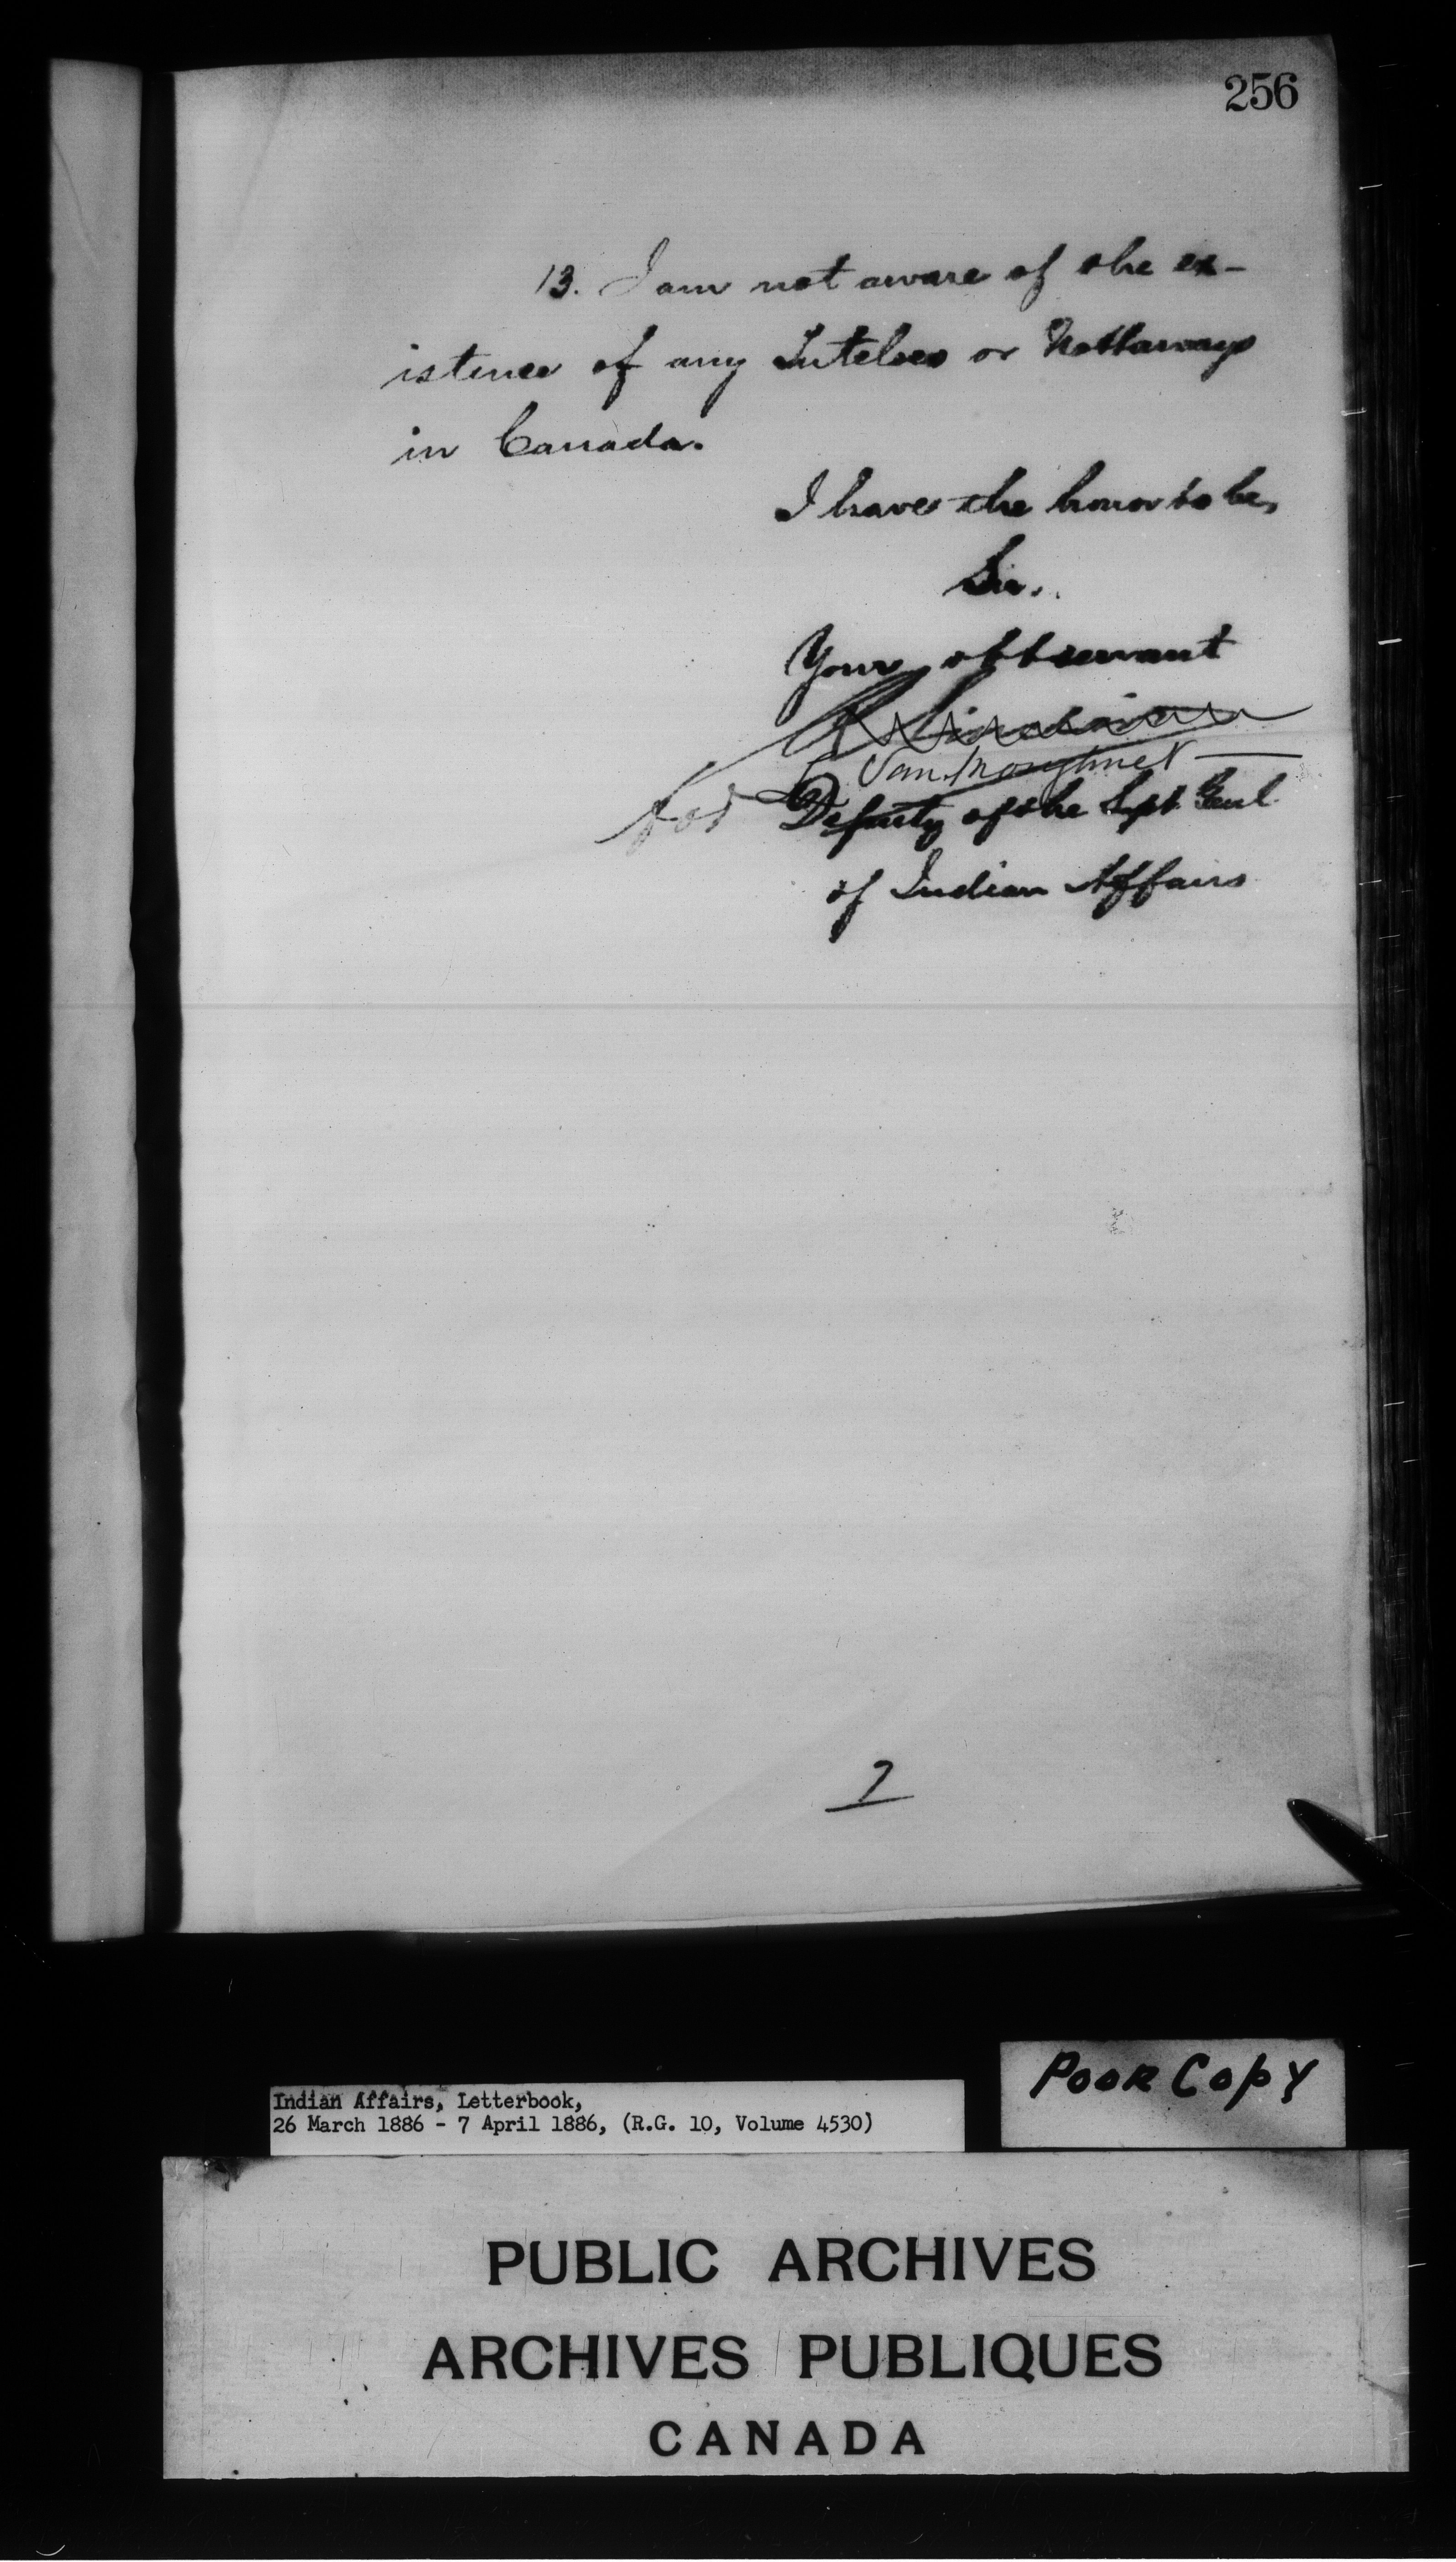 256
13. I am not aware of the ex-
istence of any Tuteloes or Nottaways
in Canada.
I have the honor to be,
Sir,
Your obt servant
L. Vankoughnet
for Deputy of the Supt. Genl
of Indian Affairs
7
POOR COPY
Indian Affairs, Letterbook,
26 March 1886 - 7 April 1886, (R.G. 10, Volume 4530)
PUBLIC ARCHIVES
ARCHIVES PUBLIQUES
CANADA